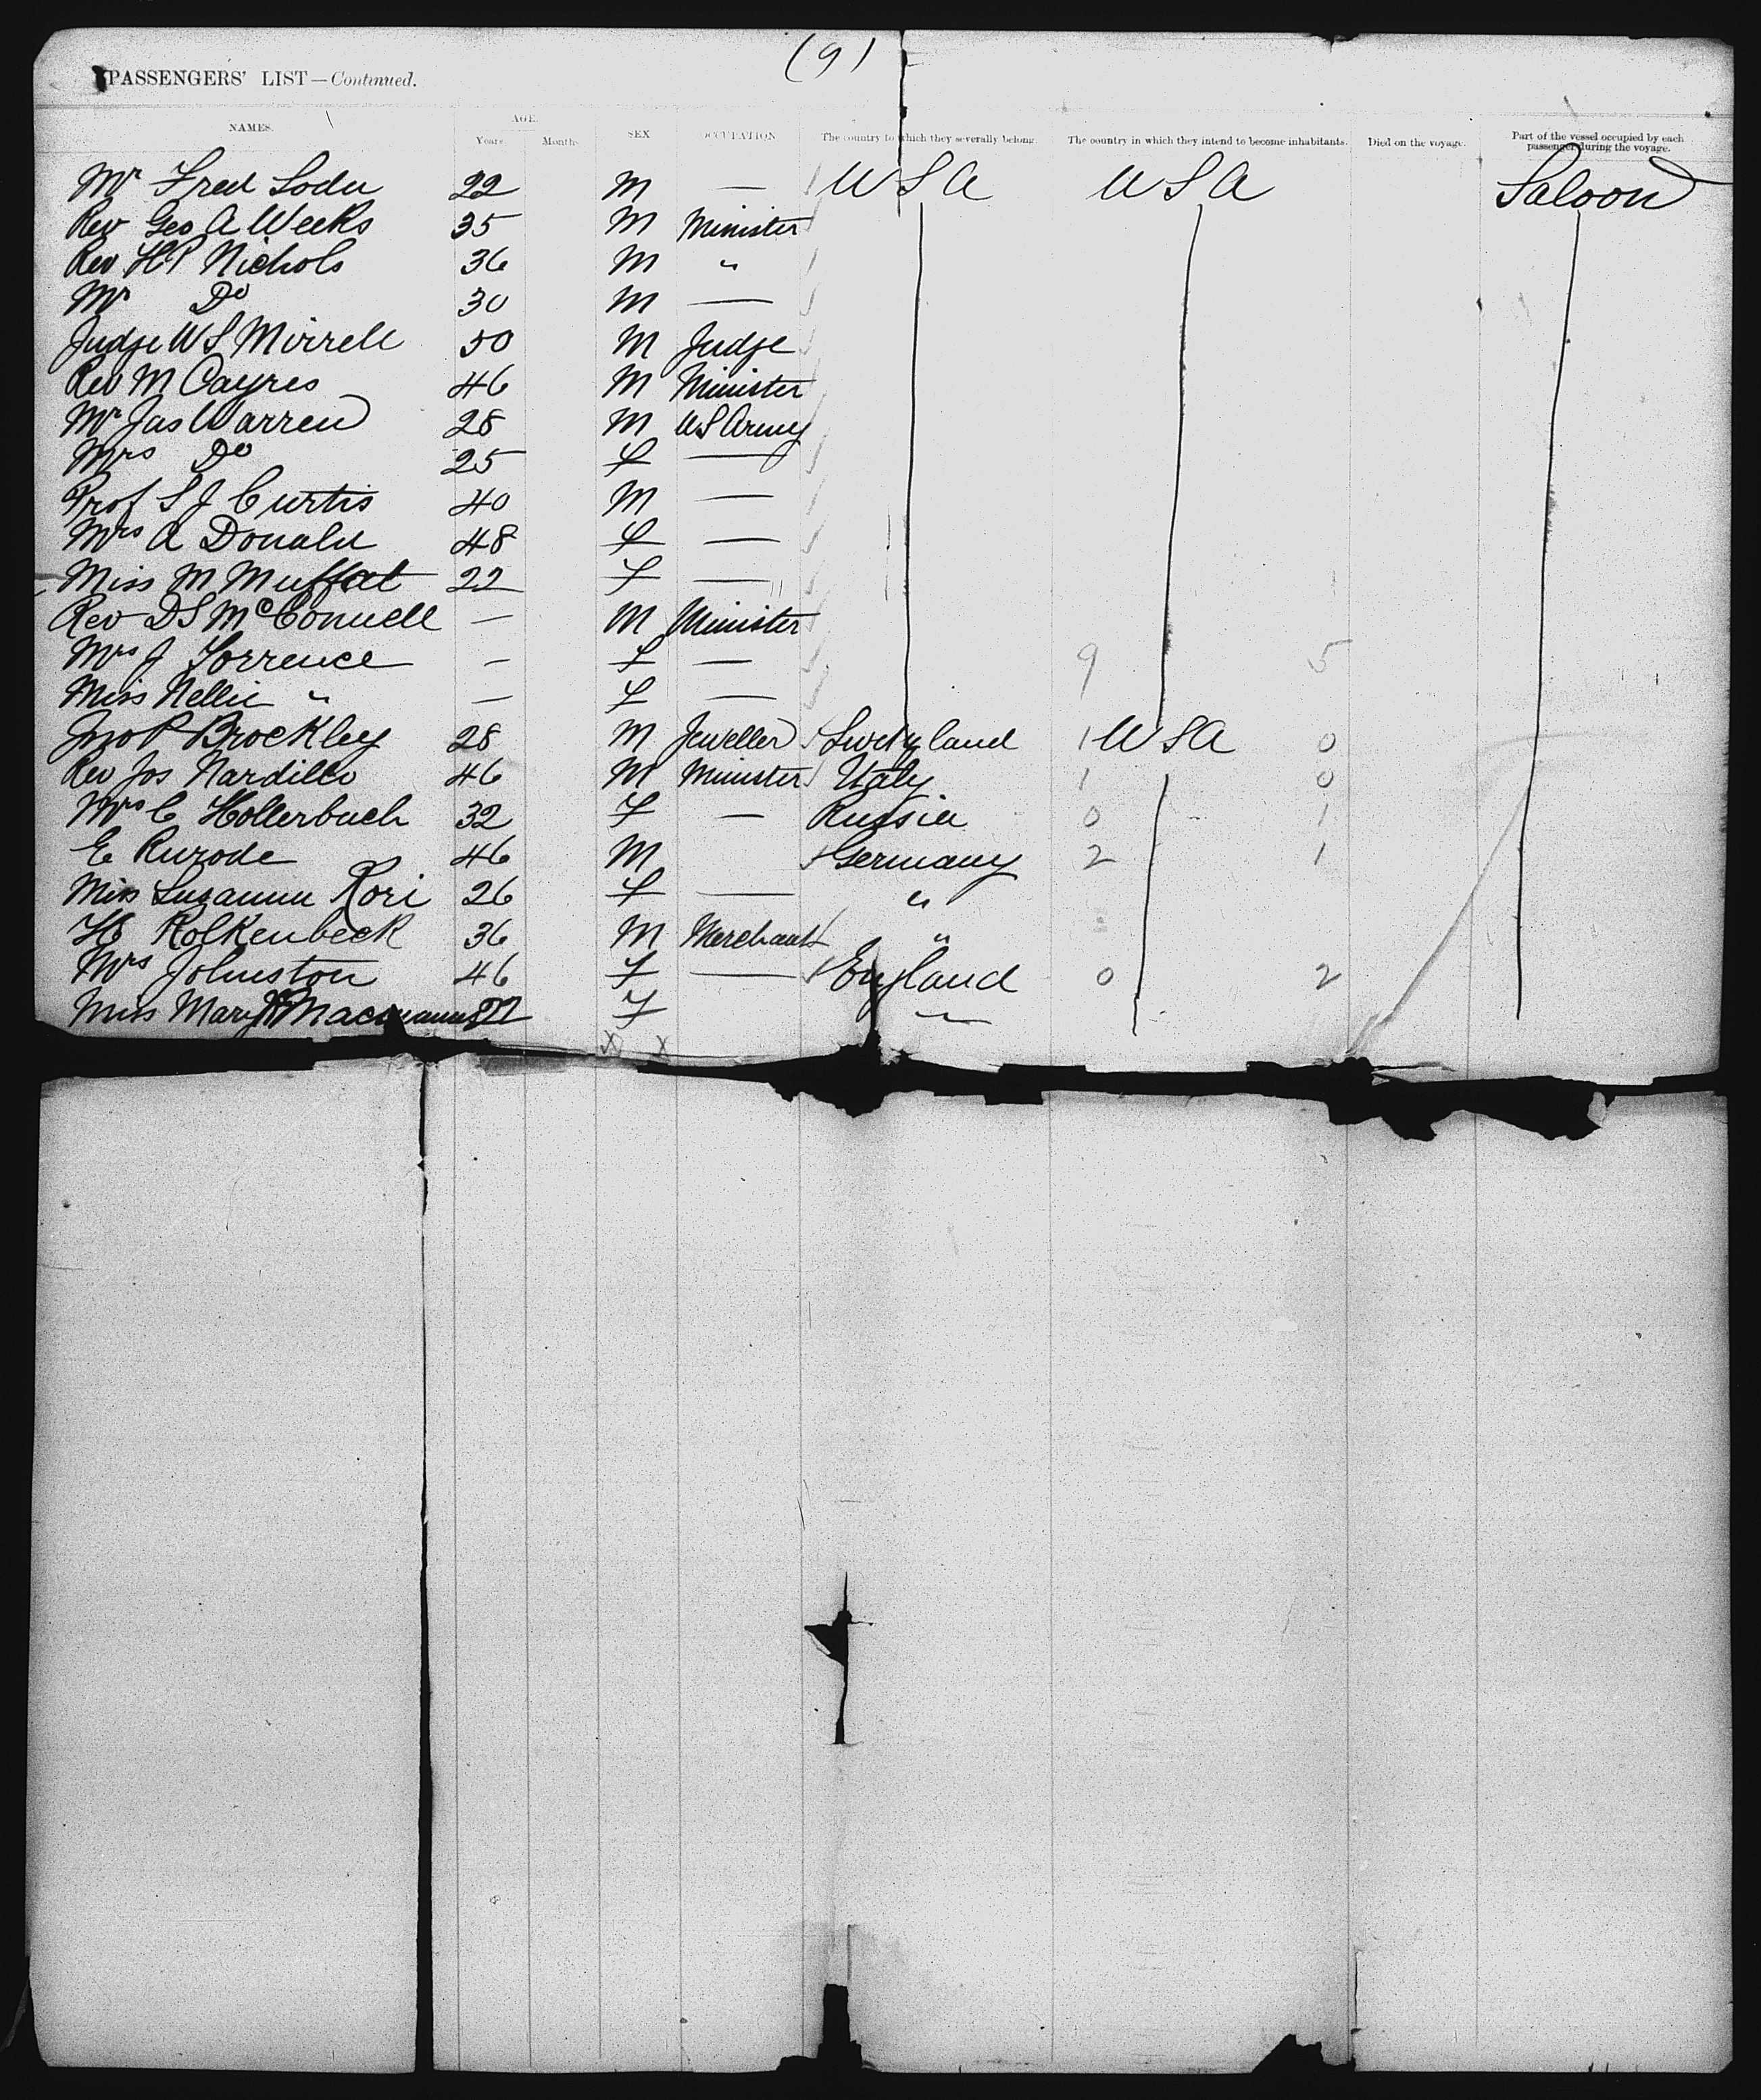 (9)
PASSENGERS' LIST—Continued.
NAMES. AGE. Years Months SEX OCCUPATION The country to which they severally belong. The country in which they intend to become inhabitants. Died on the voyage. Part of the vessel occupied by each passenger during the voyage.
Mr Fred 22 M — USA USA Saloon
Rev Geo A Weeks 35 M Minister
Rev HP Nichols 36 M "
Mr Do 30 M —
Judge WS Mirrell 50 M Judge
Rev M Cayres 46 M Minister
Mr Jas Warren 28 M US Army
Mrs Do 25 f —
Prof S J Curtis 40 M —
Mrs A Donald 48 f —
Miss M Muffat 22 f —
Rev DS McConnell — M Minister
Mrs J Torrence — f — 9 5
Miss Nellie " — f —
Jno P Brockley 28 M Jeweller 1 USA 0
Rev Jos Nardillo 46 M Minister Italy 1 0
Mrs C Hollerbach 32 F — Russia 0 1
E Rurode 46 M Germany 2 1
Miss Rori 26 f — "
H Rolkenbeck 36 M Merchant "
Mrs Johnston 46 f — England 0 2
Miss Mary F "
X X